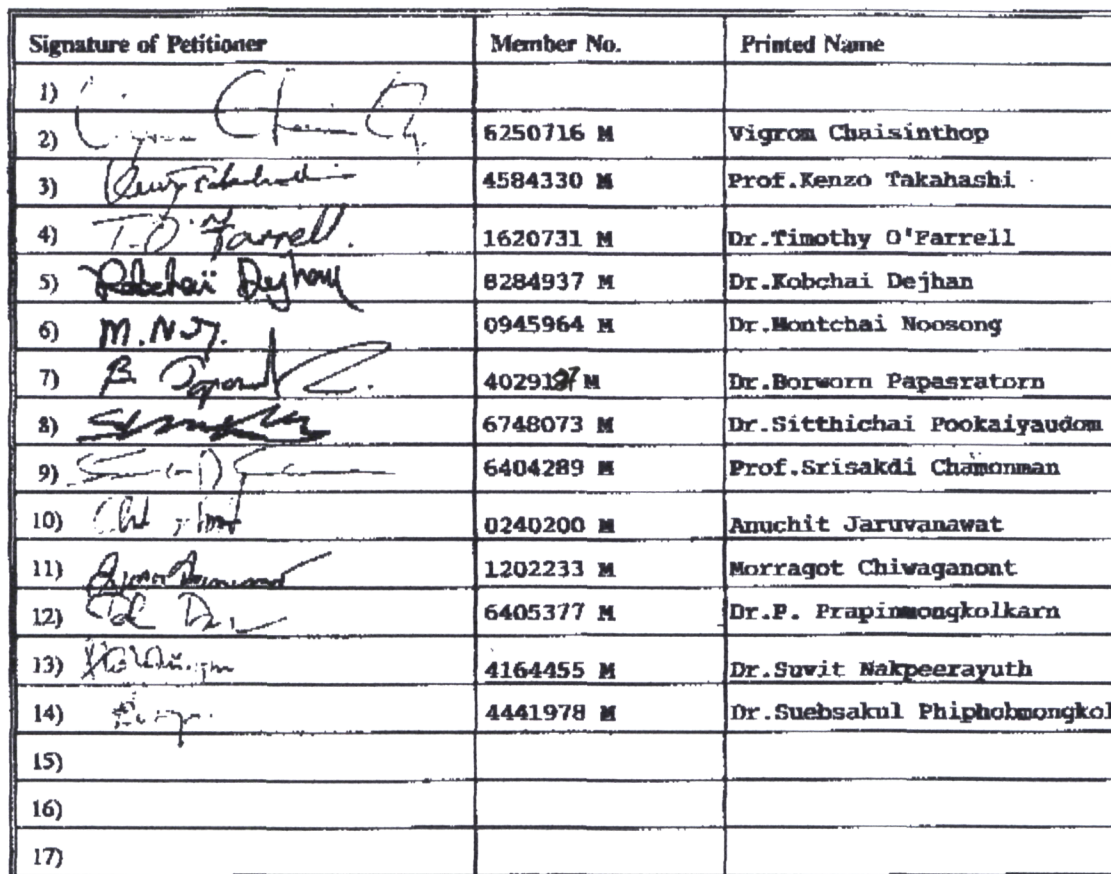 Signature of Petitioner Member No. Printed Name
1)
2) 6250716 M Vigrom Chaisinthop
3) 4584330 M Prof.Kenzo Takahashi
4) T.O'Farrell. 1620731 M Dr.Timothy O'Farrell
5) Kobchai Dejhan 8284937 M Dr.Kobchai Dejhan
6) 0945964 M Dr.Montchai Noosong
7) 4029197 M Dr.Borworn Papasratorn
8) 6748073 M Dr.Sitthichai Pookaiyaudom
9) 6404289 M Prof.Srisakdi Chamonman
10) 0240200 M Anuchit Jaruvanawat
11) 1202233 M Morragot Chiwaganont
12) 6405377 M Dr.P. Prapinmongkolkarn
13) 4164455 M Dr.Suvit Nakpeerayuth
14) 4441978 M Dr.Suebsakul Phiphobmongkol
15)
16)
17)